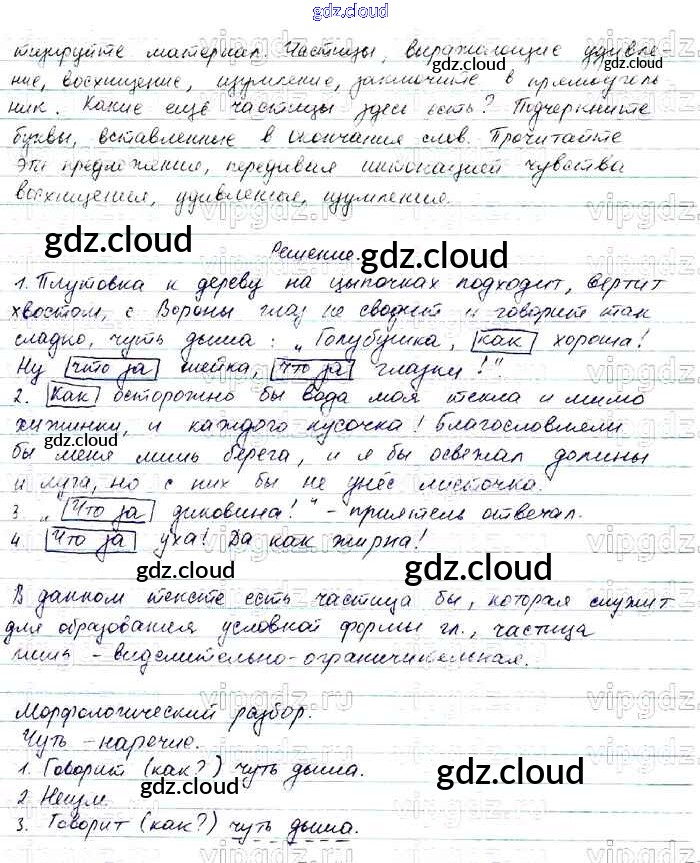 gdz.cloud
тизируйте материал. Частицы, выражающие удивле-
ние, восхищение, изумление, заключите в прямоуголь-
ник. Какие ещё частицы здесь есть? Подчеркните
буквы, вставленные в окончания слов. Прочитайте
эти предложения, передавая интонацией чувства
восхищения, удивления, изумления.
Решение.
1. Плутовка к дереву на цыпочках подходит, вертит
хвостом, с Вороны глаз не сводит и говорит так
сладко, чуть дыша: „Голубушка, как хороша!
Ну что за шейка, что за глазки!"
2. Как осторожно бы вода моя текла и мимо
хижинки, и каждого кусочка! Благословляли
бы меня лишь берега, и я бы освежал долины
и луга, но с них бы не унёс листочка.
3. „Что за диковина!" - приятель отвечал.
4. Что за уха! Да как жирна!
В данном тексте есть частица бы, которая служит
для образования условной формы гл., частица
лишь - выделительно-ограничительная.
Морфологический разбор.
Чуть - наречие.
1. Говорит (как?) чуть дыша.
2. Неизм.
3. Говорит (как?) чуть дыша.